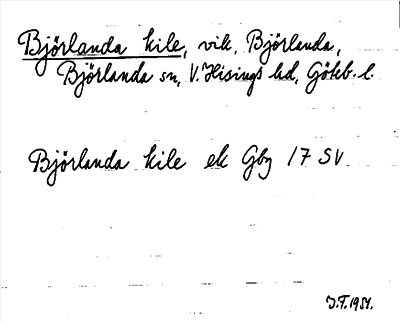 Björlanda kile, vik, Björlanda,
Björlanda sn, V. Hisings hd, Göteb. l.
Björlanda kile ek Gbg 17 SV
J.F. 1951.